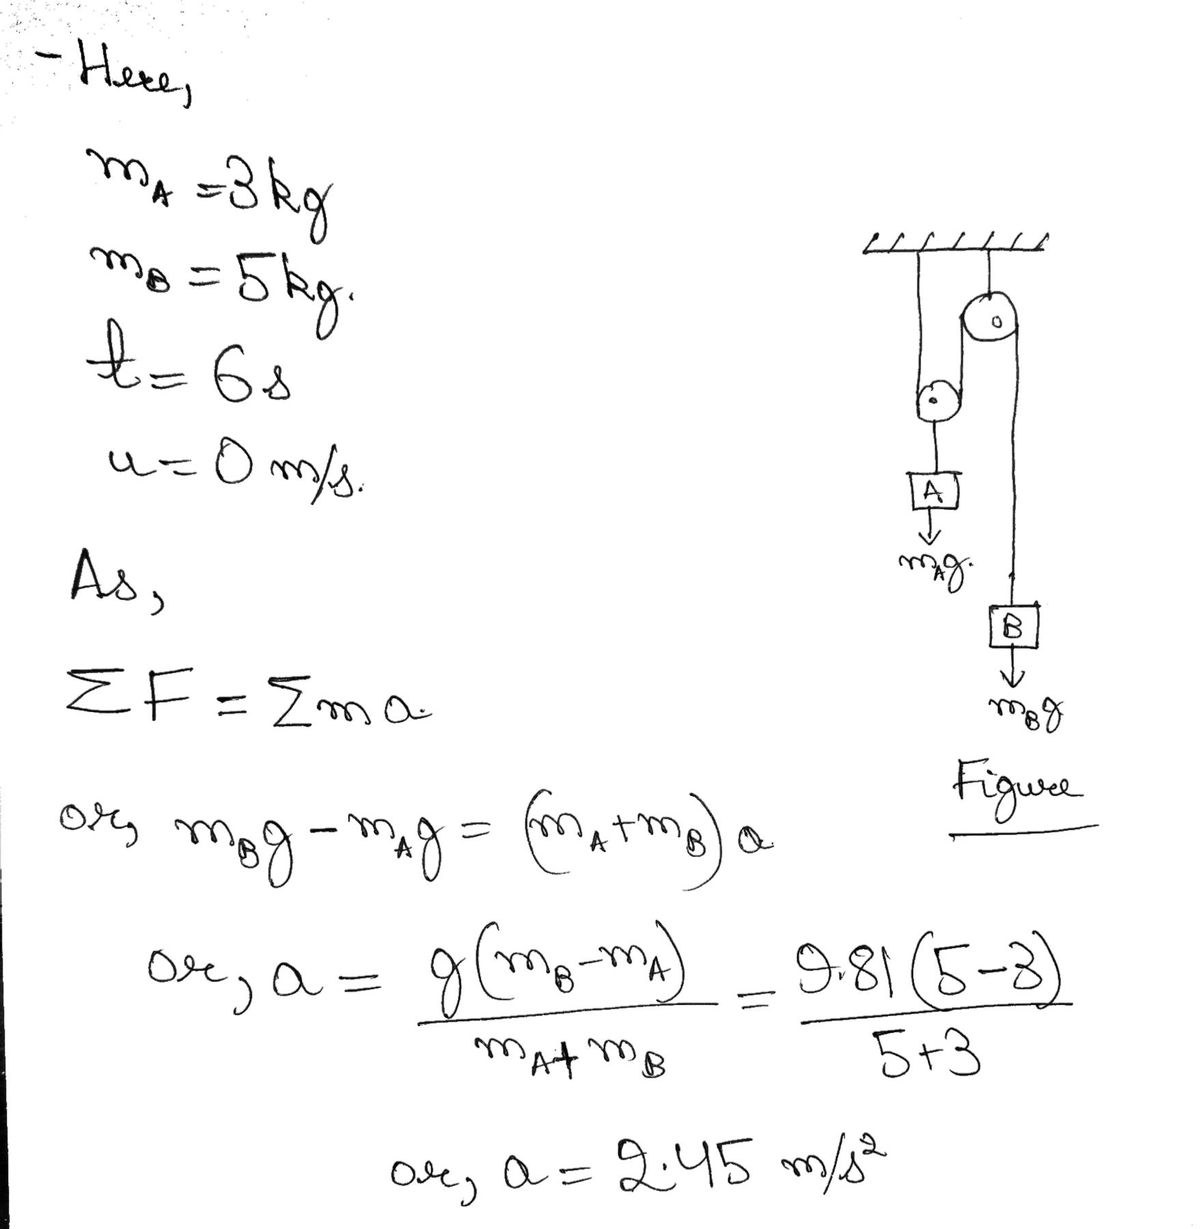 - Here,
m_A = 3 kg
m_B = 5 kg.
t = 6 s
u = 0 m/s.
A
m_A g.
B
m_B g
Figure
As,
ΣF = Σma.
or, m_B g - m_A g = (m_A + m_B) a
or, a = g(m_B - m_A) / (m_A + m_B) = 9.81 (5-3) / (5+3)
or, a = 2.45 m/s²